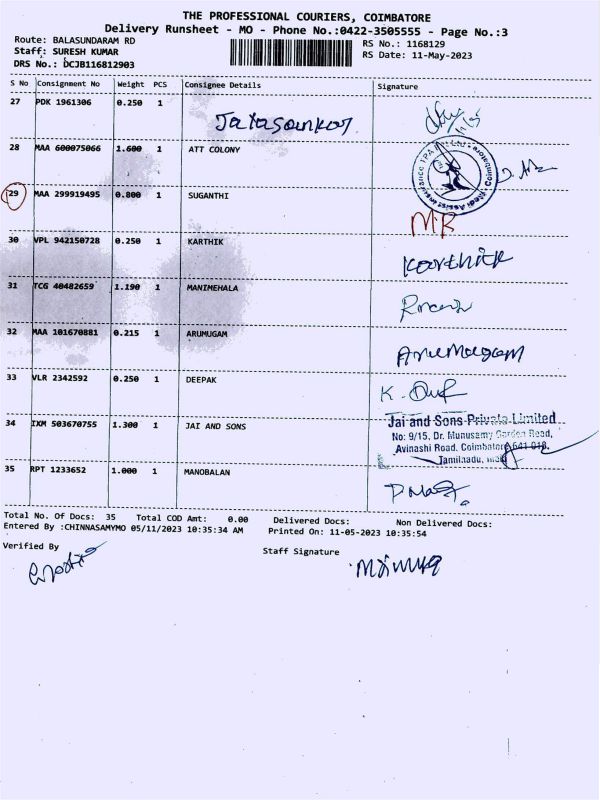 THE PROFESSIONAL COURIERS, COIMBATORE
Delivery Runsheet - MO - Phone No.:0422-3505555 - Page No.:3
Route: BALASUNDARAM RD
RS No.: 1168129
Staff: SURESH KUMAR
RS Date: 11-May-2023
DRS No.: DCJB116812903
S No Consignment No Weight PCS Consignee Details Signature
27 PDK 1961306 0.250 1
28 MAA 600075066 1.600 1 ATT COLONY
29 MAA 299919495 0.800 1 SUGANTHI
MR
30 VPL 942150728 0.250 1 KARTHIK
Karthik
31 TCG 40482659 1.190 1 MANIMEHALA
32 MAA 101670881 0.215 1 ARUMUGAM
Arumugam
33 VLR 2342592 0.250 1 DEEPAK
34 IXM 503670755 1.300 1 JAI AND SONS
Jai and Sons Private Limited
No: 9/15, Dr. Munusamy Garden Road,
Avinashi Road, Coimbatore 641 018.
Tamilnadu,
35 RPT 1233652 1.000 1 MANOBALAN
Total No. Of Docs: 35 Total COD Amt: 0.00 Delivered Docs: Non Delivered Docs:
Entered By :CHINNASAMYMO 05/11/2023 10:35:34 AM Printed On: 11-05-2023 10:35:54
Verified By
Staff Signature